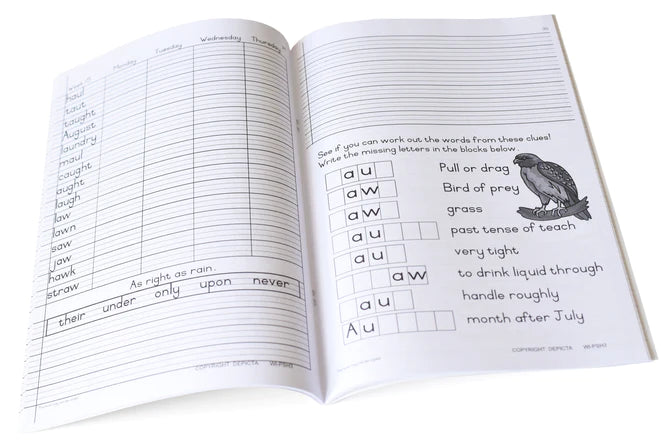 Monday Tuesday Wednesday Thursday
haul
taut
taught
August
laundry
maul
caught
aught
laugh
law
lawn
saw
jaw
hawk
straw
As right as rain.
their under only upon never
COPYRIGHT DEPICTA
See if you can work out the words from these clues!
Write the missing letters in the blocks below.
au Pull or drag
aw Bird of prey
aw grass
au past tense of teach
au very tight
aw to drink liquid through
au handle roughly
Au month after July
COPYRIGHT DEPICTA